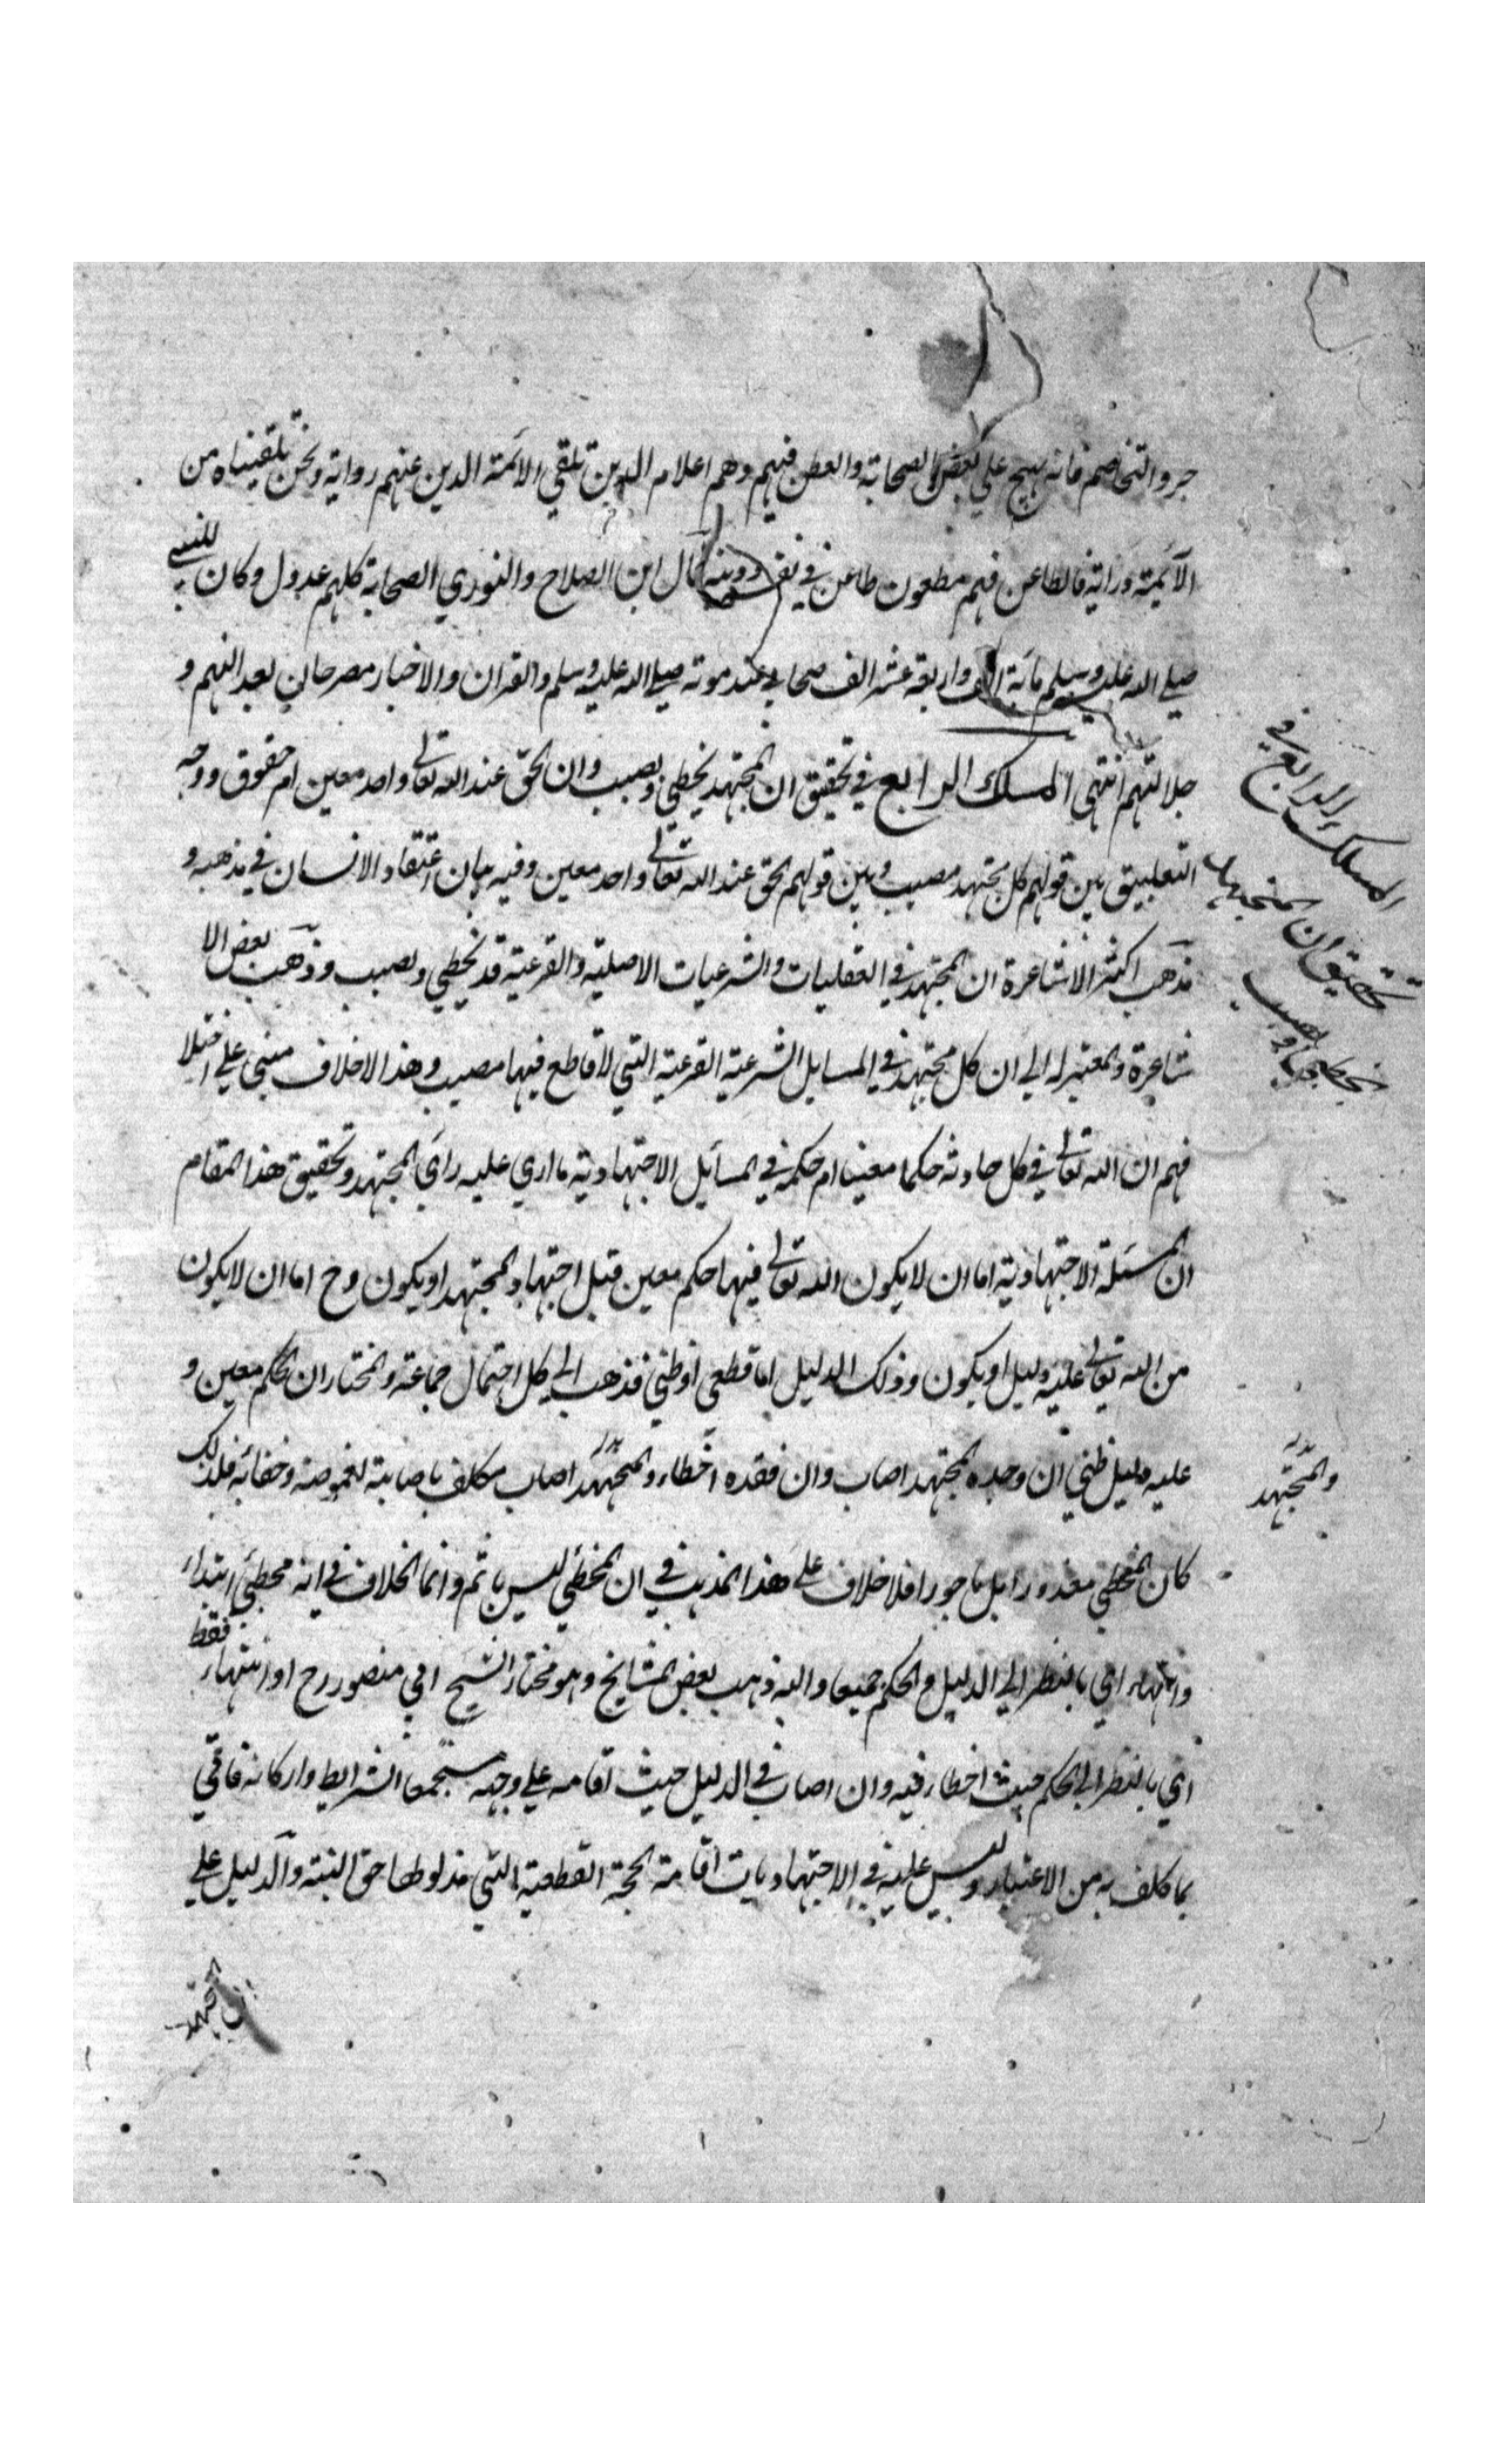 جر والتخاصم فانه يهيج علي بغض الصحابة والطعن فيهم وهم اعلام الدين تلقي الائمة الدين عنهم رواية ونحن تلقيناه من
الائمة دراية فالطاعن فيهم مطعون طاعن في نفسه ودينه قال ابن الصلاح والنووي الصحابة كلهم عدول وكان للنبي
صلي الله عليه وسلم مائة الف واربعة عشر الف صحابي عند موته صلي الله عليه وسلم والقران والاخبار مصرحان بعدالتهم و
جلالتهم انتهي المسلك الرابع في تحقيق ان المجتهد يخطي ويصيب وان الحق عند الله تعالي واحد معين ام حقوق ووجه
التطبيق بين قولهم كل مجتهد مصيب وبين قولهم الحق عند الله تعالي واحد معين وفيه بيان اعتقاد الانسان في مذهبه و
مذهب اكثر الاشاعرة ان المجتهد في العقليات والشرعيات الاصلية والفرعية قد يخطي ويصيب وذهب بعض الا
شاعرة والمعتزله الي ان كل مجتهد في المسايل الشرعية الفرعية التي لا قاطع فيها مصيب وهذا الاخلاف مبني علي اختلا
فهم ان الله تعالي في كل حادثة حكما معينا ام حكمه في المسائل الاجتهادية ما اري عليه راي المجتهد وتحقيق هذا المقام
ان المسئلة الاجتهادية اما ان لا يكون الله تعالي فيها حكم معين قبل اجتهاد المجتهد او يكون وح اما ان لا يكون
من الله تعالي عليه دليل او يكون وذلك الدليل اما قطعي او ظني فذهب الي كل احتمال جماعة والمختار ان الحكم معين و
عليه دليل ظني ان وجده المجتهد اصاب وان فقده اخطاء والمجتهد اصاب مكلف باصابته لغموضه وخفائه فلذلك
كان المخطي معذورا بل ماجورا فلا خلاف علي هذا المذهب في ان المخطئي ليس باثم وانما الخلاف في انه مخطئي ابتداء
وانتهاء اي بالنظر الي الدليل والحكم جميعا واليه ذهب بعض المشايخ وهو مختار الشيخ ابي منصور رح او انتهاء فقط
اي بالنظر الي الحكم حيث اخطاء فيه وان اصاب في الدليل حيث اقامه علي وجهه مستجمعا الشرايط واركانه فاتي
بما كلف به من الاعتبار وليس عليه في الاجتهاديات اقامة الحجة القطعية التي مدلولها حق البتة والدليل علي
المسلك الرابع في
تحقيق ان المجتهد
يخطي ويصيب
والمجتهد
ان المجتهد